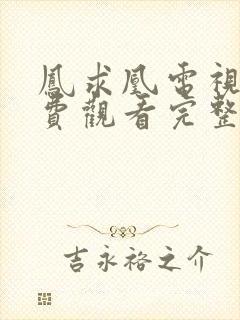 鳳求凰電視
費觀看完整
吉永裕之介